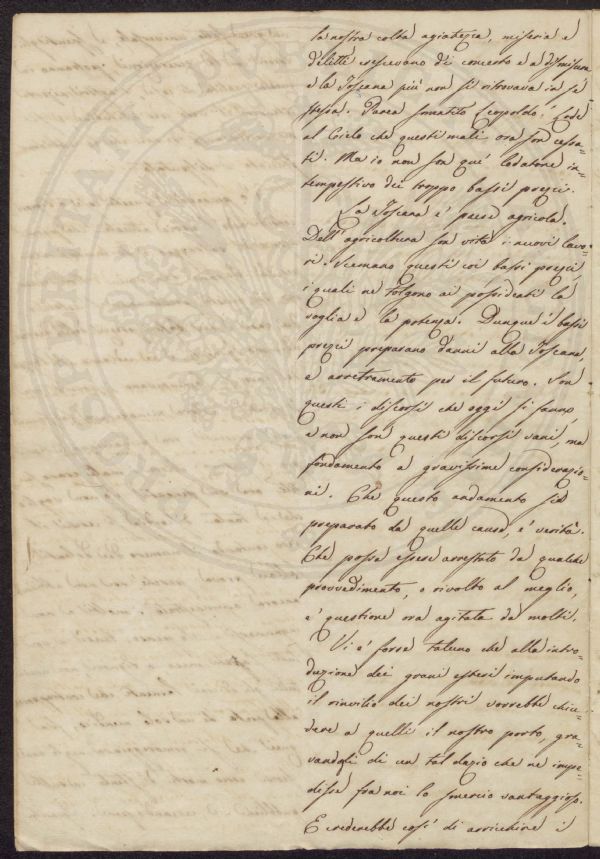 la nostra colta agiatezza, miseria e
delitti crescevano di concerto e a dismisura
e la Toscana più non si ritrovava in sé
stessa. Parea smentito Leopoldo! Lode
al Cielo che questi mali ora son cessa-
ti. Ma io non son qui lodatore in-
tempestivo dei troppo bassi prezzi.
La Toscana è paese agricola.
Dell'agricoltura son vita i nuovi lavo-
ri. Scemano questi coi bassi prezzi,
i quali ne tolgono ai possidenti la
voglia e la potenza. Dunque i bassi
prezzi preparano danni alla Toscana,
e arretramento per il futuro. Son
questi i discorsi che oggi si fanno,
e non son questi discorsi vani, ma
fondamento a gravissime considerazio-
ni. Che questo andamento sia
preparato da quelle cause, è verità.
Che possa essere arrestato da qualche
provvedimento, o rivolto al meglio,
è questione ora agitata da molti.
Vi è forse taluno che alla intro-
duzione dei grani esteri imputando
il rinvilio dei nostri vorrebbe chiu-
dere a quelli il nostro porto, gra-
vandoli di un tal dazio che ne impe-
disse fra noi lo smercio vantaggioso.
E crederebbe così di arricchire i